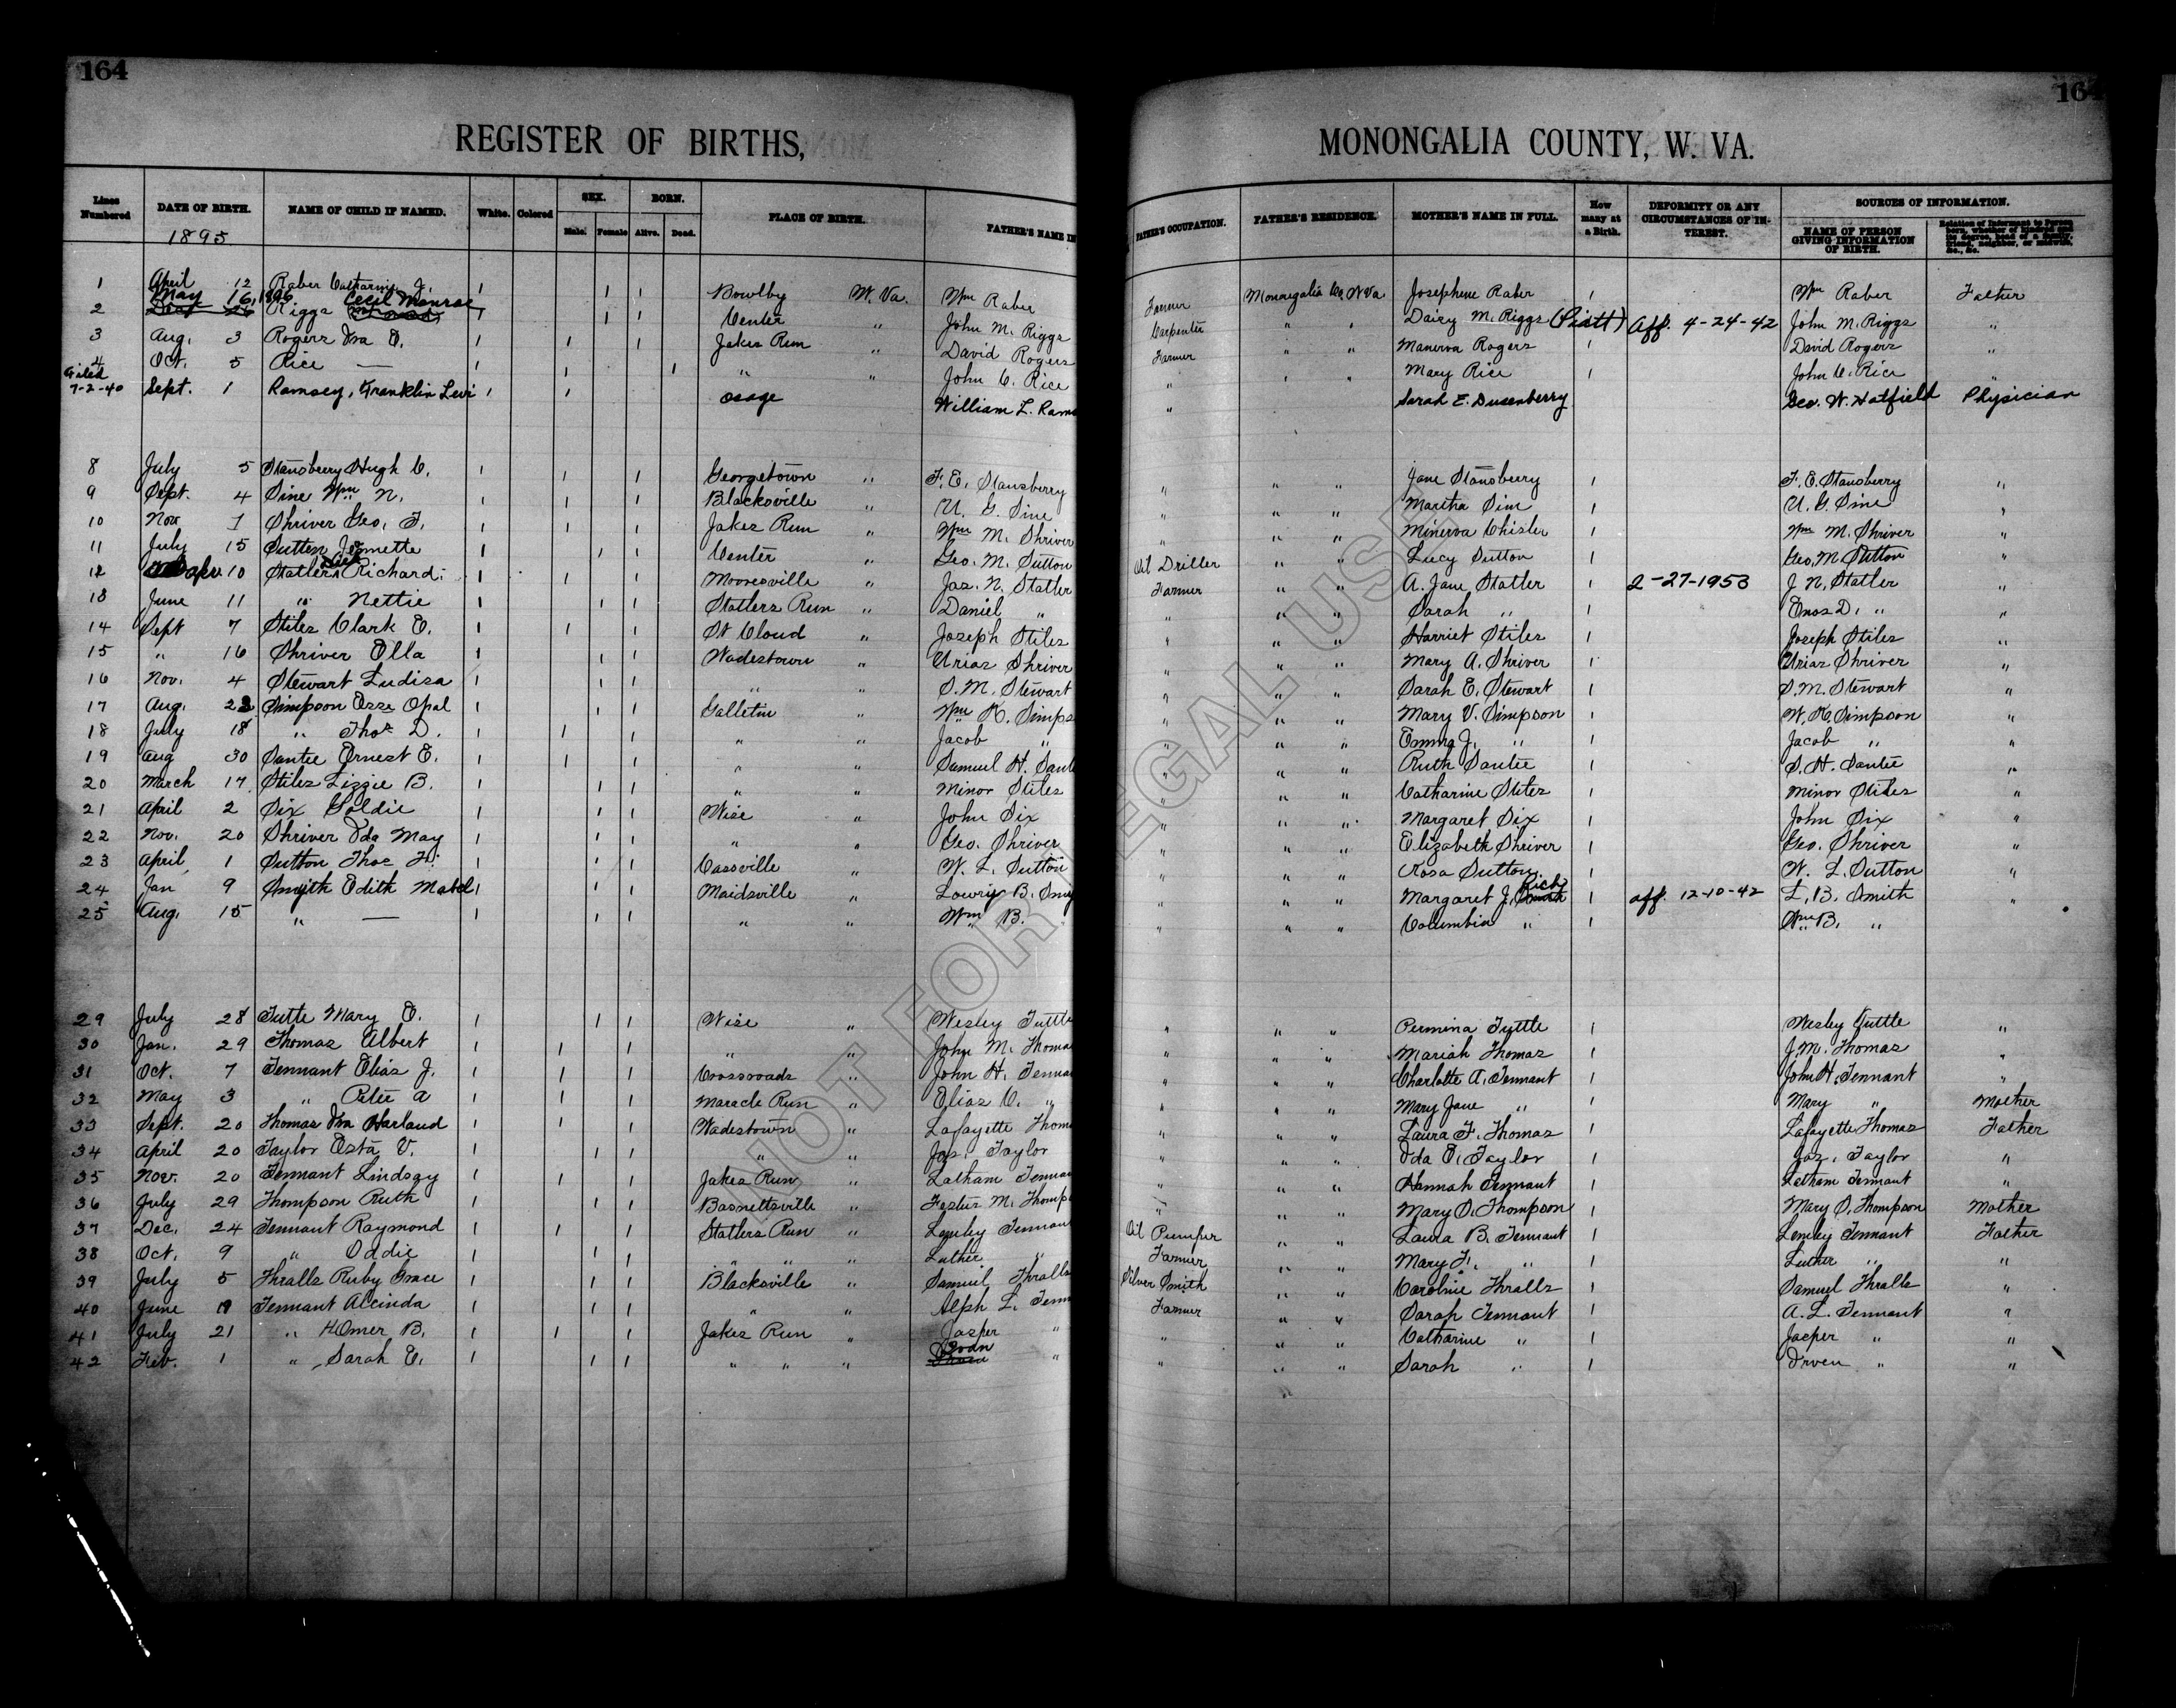 164
164
REGISTER OF BIRTHS, MONONGALIA COUNTY, W. VA.
Lines Numbered DATE OF BIRTH. NAME OF CHILD IF NAMED. White. Colored SEX. Male. Female BORN. Alive. Dead. PLACE OF BIRTH. FATHER'S NAME IN FATHER'S OCCUPATION. FATHER'S RESIDENCE. MOTHER'S NAME IN FULL. How many at a Birth. DEFORMITY OR ANY CIRCUMSTANCES OF INTEREST. SOURCES OF INFORMATION. NAME OF PERSON GIVING INFORMATION OF BIRTH. Relation of Informant to Person born, whether of kindred and its degree, head of a family, friend, neighbor, or midwife, &c., &c.
1895
1 April 12 Raber Catharine J. 1 1 1 Bowlby W. Va. Wm Raber Farmer Monongalia Co. W Va Josephene Raber 1 Wm Raber Father
May 16, 1896 Cecil Monroe
2 Riggs 1 1 1 Center " John M. Riggs Carpenter " " Daisy M. Riggs (Piatt) Aff. 4-24-42 John M. Riggs "
3 Aug. 3 Rogers Ira E. 1 1 1 Jakes Run " David Rogers Farmer " " Manerva Rogers 1 David Rogers "
4 Oct. 5 Rice — 1 1 1 " " John C. Rice " " " Mary Rice 1 John C. Rice "
Filed 7-2-40 Sept. 1 Ramsey, Franklin Levi 1 1 Osage William L. Rams " Sarah E. Dusenberry Geo. W. Hatfield Physician
8 July 5 Stansberry Hugh C. 1 1 1 Georgetown " F. E. Stansberry " " " Jane Stansberry 1 F. E. Stansberry "
9 Sept. 4 Sine Wm N. 1 1 1 Blacksville " U. G. Sine " " " Martha Sine 1 U. G. Sine "
10 Nov 1 Shriver Geo. F. 1 1 1 Jakes Run " Wm M. Shriver " " " Minerva Chisler 1 Wm M. Shriver "
11 July 15 Sutton Jennette 1 1 1 Center " Geo. M. Sutton Oil Driller " " Lucy Sutton 1 Geo. M. Sutton "
12 Apr. 10 Statler Richard 1 1 1 Mooresville " Jas. N. Statler Farmer " " A. Jane Statler 1 2-27-1953 J. N. Statler "
13 June 11 " Nettie 1 1 1 Statlers Run " Daniel " " " " Sarah " 1 Enos D. " "
14 Sept 7 Stiles Clark E. 1 1 1 St Cloud " Joseph Stiles " " " Harriet Stiles 1 Joseph Stiles "
15 " 16 Shriver Olla 1 1 1 Wadestown " Urias Shriver " " " Mary A. Shriver 1 Urias Shriver "
16 Nov. 4 Stewart Ludisa 1 1 1 " " S. M. Stewart " " " Sarah E. Stewart 1 S. M. Stewart "
17 Aug. 22 Simpson Osse Opal 1 1 1 Galletin " Wm K. Simps " " " Mary V. Simpson 1 W. K. Simpson "
18 July 18 " Thos D. 1 1 1 " " Jacob " " " " Emma J. " 1 Jacob " "
19 Aug 30 Santee Ernest E. 1 1 1 " " Samuel H. Sant " " " Ruth Santee 1 S. H. Santee "
20 March 17 Stiles Lizzie B. 1 1 1 " " Minor Stiles " " " Catharine Stiles 1 Minor Stiles "
21 April 2 Six Goldie 1 1 1 Wise " John Six " " " Margaret Six 1 John Six "
22 Nov. 20 Shriver Ida May 1 1 1 " " Geo. Shriver " " " Elizabeth Shriver 1 Geo. Shriver "
23 April 1 Sutton Thos F. 1 1 1 Cassville " W. L. Sutton " " " Rosa Sutton 1 W. L. Sutton "
24 Jan 9 Smyth Edith Mabel 1 1 1 Maidsville " Lowry B. Smy " " " Margaret J. Rich 1 aff. 12-10-42 L. B. Smith "
25 Aug. 15 " — 1 1 1 " " Wm B. " " " Columbia " 1 Wm B. "
29 July 28 Tuttle Mary E. 1 1 1 Wise " Wesley Tuttle " " " Permina Tuttle 1 Wesley Tuttle "
30 Jan. 29 Thomas Albert 1 1 1 " " John M. Thomas " " " Mariah Thomas 1 J. M. Thomas "
31 Oct. 7 Tennant Elias J. 1 1 1 Crossroads " John H. Tennan " " " Charlotte A. Tennant 1 John H. Tennant "
32 May 3 " Peter A 1 1 1 Maracle Run " Elias C. " " " " Mary Jane " 1 Mary " Mother
33 Sept. 20 Thomas Ira Harland 1 1 1 Wadestown " Lafayette Thom " " " Laura F. Thomas 1 Lafayette Thomas Father
34 April 20 Taylor Esta V. 1 1 1 " " Jas. Taylor " " " Ida E. Taylor 1 Jas. Taylor "
35 Nov. 20 Tennant Lindsey 1 1 1 Jakes Run " Latham Tennan " " " Hannah Tennant 1 Latham Tennant "
36 July 29 Thompson Ruth 1 1 1 Basnettsville " Festus M. Thomp " " " Mary O. Thompson 1 Mary O. Thompson Mother
37 Dec. 24 Tennant Raymond 1 1 1 Statlers Run " Lemley Tennan Oil Pumper " " Laura B. Tennant 1 Lemley Tennant Father
38 Oct. 9 " Oddie 1 1 1 " " " Luther " Farmer " " Mary F. " 1 Luther " "
39 July 5 Thralls Ruby Grace 1 1 1 Blacksville " Samuel Thralls Silver Smith " " Caroline Thralls 1 Samuel Thralls "
40 June Tennant Alcinda 1 1 1 " " Alph L. Tenn Farmer " " Sarah Tennant 1 A. L. Tennant "
41 July 21 " Homer B. 1 1 1 Jakes Run " Jasper " " " " Catharine " 1 Jasper " "
42 Feb. 1 " Sarah E. 1 1 1 " " " " " " " Sarah " 1 Irven " "
NOT FOR LEGAL USE